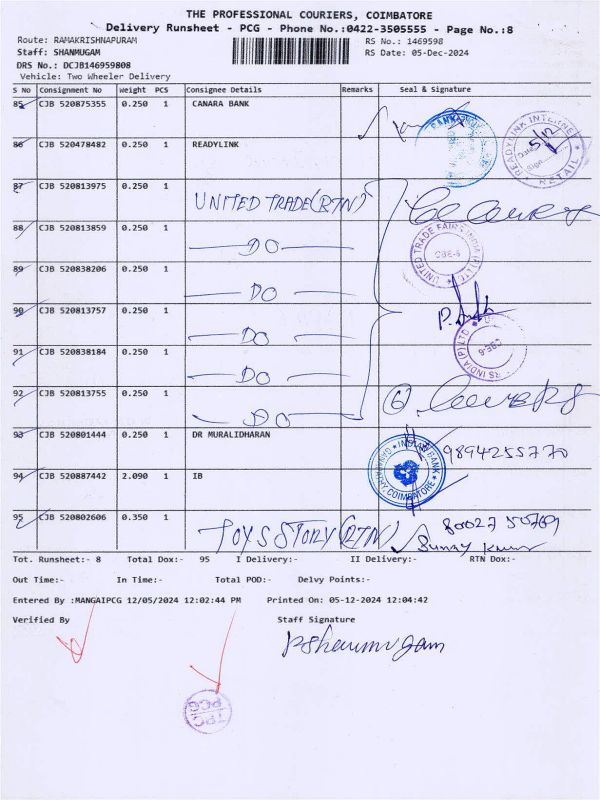 THE PROFESSIONAL COURIERS, COIMBATORE
Delivery Runsheet - PCG - Phone No.:0422-3505555 - Page No.:8
Route: RAMAKRISHNAPURAM
RS No.: 1469598
Staff: SHANMUGAM
RS Date: 05-Dec-2024
DRS No.: DCJB146959808
Vehicle: Two Wheeler Delivery
S No Consignment No Weight PCS Consignee Details Remarks Seal & Signature
85 CJB 520875355 0.250 1 CANARA BANK
86 CJB 520478482 0.250 1 READYLINK
READYLINK INTERNET
5/12
RETAIL
87 CJB 520813975 0.250 1 UNITED TRADE (RTN)
88 CJB 520813859 0.250 1 DO
UNITED TRADE FAIRS INDIA (P) LTD
CBE-6
89 CJB 520838206 0.250 1 DO
90 CJB 520813757 0.250 1 DO
91 CJB 520838184 0.250 1 DO
RS INDIA (P) LTD
CBE-6
92 CJB 520813755 0.250 1 DO
6
93 CJB 520801444 0.250 1 DR MURALIDHARAN 9894255770
94 CJB 520887442 2.090 1 IB
INDIAN BANK
COIMBATORE
95 CJB 520802606 0.350 1 TOYS STORY (RTN)
Tot. Runsheet:- 8 Total Dox:- 95 I Delivery:- II Delivery:- RTN Dox:-
Out Time:- In Time:- Total POD:- Delvy Points:-
Entered By :MANGAIPCG 12/05/2024 12:02:44 PM Printed On: 05-12-2024 12:04:42
Verified By Staff Signature
PShanmugam
TPC
PCG